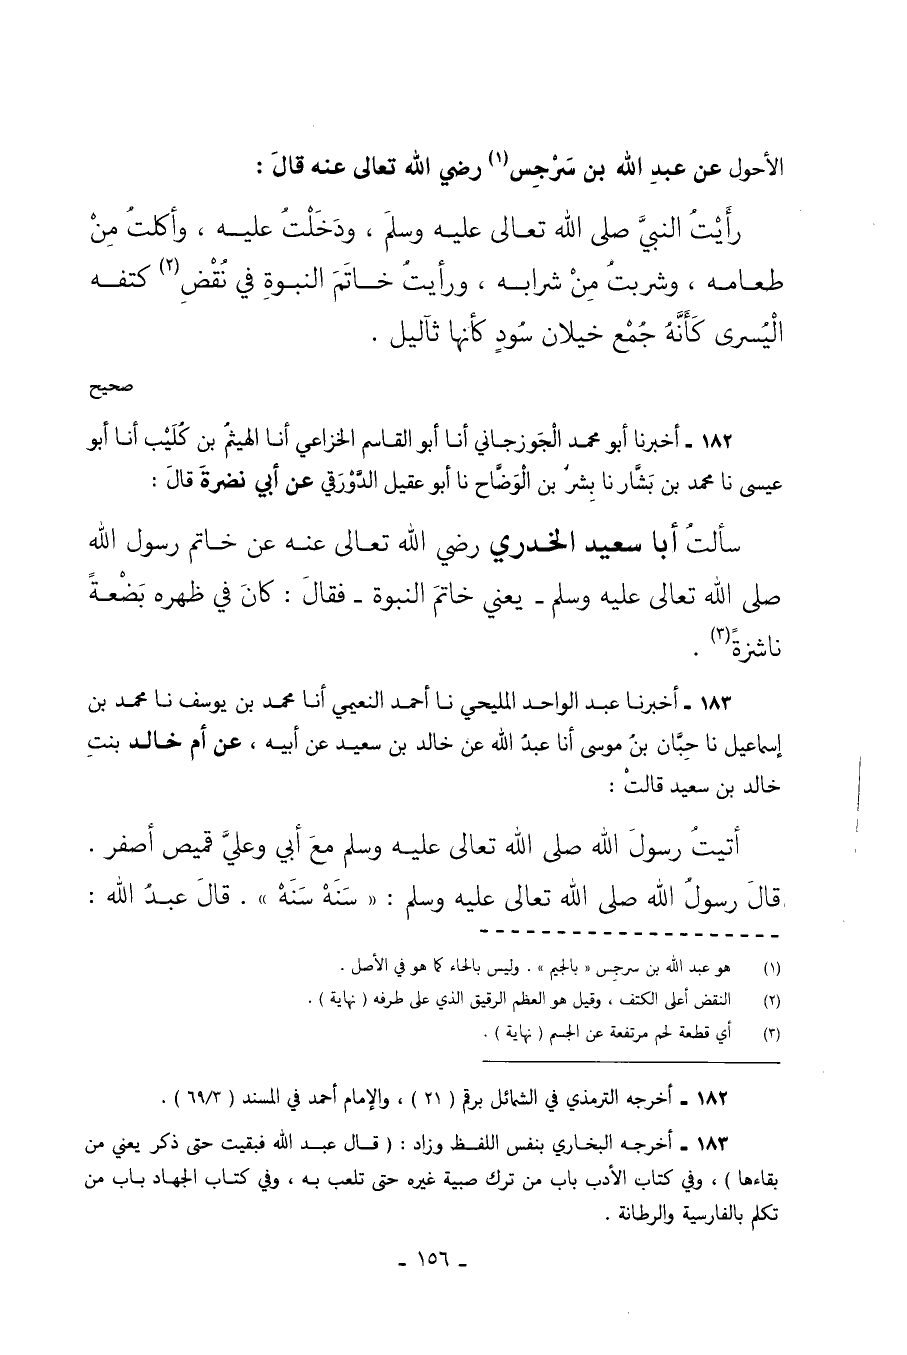 الأحول عن عبدِ الله بن سَرْجِس(١) رضي الله تعالى عنه قالَ :
رأَيْتُ النبيَّ صلى الله تعـالى عليـه وسلمَ ، ودَخَلْتُ عليـه ، وأكلتُ مِنْ
طعـامـه ، وشربتُ مِنْ شرابـه ، ورأيتُ خـاتَمَ النبـوةِ في نُغْضِ(٢) كتفـه
الْيُسرى كَأَنَّهُ جُمْع خيلان سُودٍ كأنها ثآليل .
صحيح
١٨٢ ـ أخبرنا أبو محمد الْجَوزجـاني أنـا أبو القـاسم الخزاعي أنـا الهيثمُ بن كُلَيْب أنـا أبو
عيسى نا محمد بن بَشَّار نا بِشرُ بن الْوَضَّاح نا أبو عقيل الدَّوْرَقي عن أبي نضرةَ قالَ :
سـألتُ أبـا سعيـد الخـدري رضي الله تعـالى عنـه عن خـاتم رسول الله
صلى الله تعالى عليه وسلم ـ يعني خاتمَ النبوة ـ فقالَ : كانَ في ظهره بَضْعـةً
ناشزةً(٣) .
١٨٣ ـ أخبرنـا عبـد الواحـد المليحي نـا أحمـد النعيمي أنـا محمـد بن يوسف نـا محمـد بن
إسماعيل نا حِبَّان بنُ موسى أنا عبدُ الله عن خالد بن سعيـد عن أبيـه ، عن أم خـالـد بنتِ
خالد بن سعيد قالتْ :
أتيتُ رسولَ الله صلى الله تعـالى عليـه وسلم معَ أبي وعليَّ قميص أصفر .
قالَ رسولُ الله صلى الله تعالى عليه وسلم : « سَنَهْ سَنَهْ » . قالَ عبـدُ الله :
(١) هو عبد الله بن سرجس « بالجيم » . وليس بالحاء كما هو في الأصل .
(٢) النغض أعلى الكتف ، وقيل هو العظم الرقيق الذي على طرفه ( نهاية ) .
(٣) أي قطعة لحم مرتفعة عن الجسم ( نهاية ) .
١٨٢ ـ أخرجه الترمذي في الشمائل برقم ( ٢١ ) ، والإمام أحمد في المسند ( ٦٩/٣ ) .
١٨٣ ـ أخرجـه البخاري بنفس اللفـظ وزاد : ( قـال عبـد الله فبقيت حتى ذكر يعني من
بقاءها ) ، وفي كتاب الأدب باب من ترك صبية غيره حتى تلعب بـه ، وفي كتـاب الجهـاد بـاب من
تكلم بالفارسية والرطانة .
ـ ١٥٦ ـ